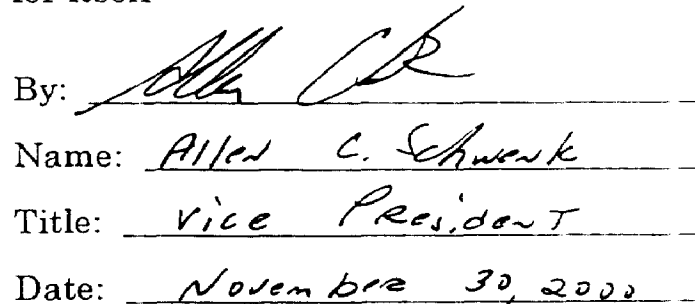 for itself
By: Allen C
Name: Allen C. Schwenk
Title: Vice President
Date: November 30, 2000